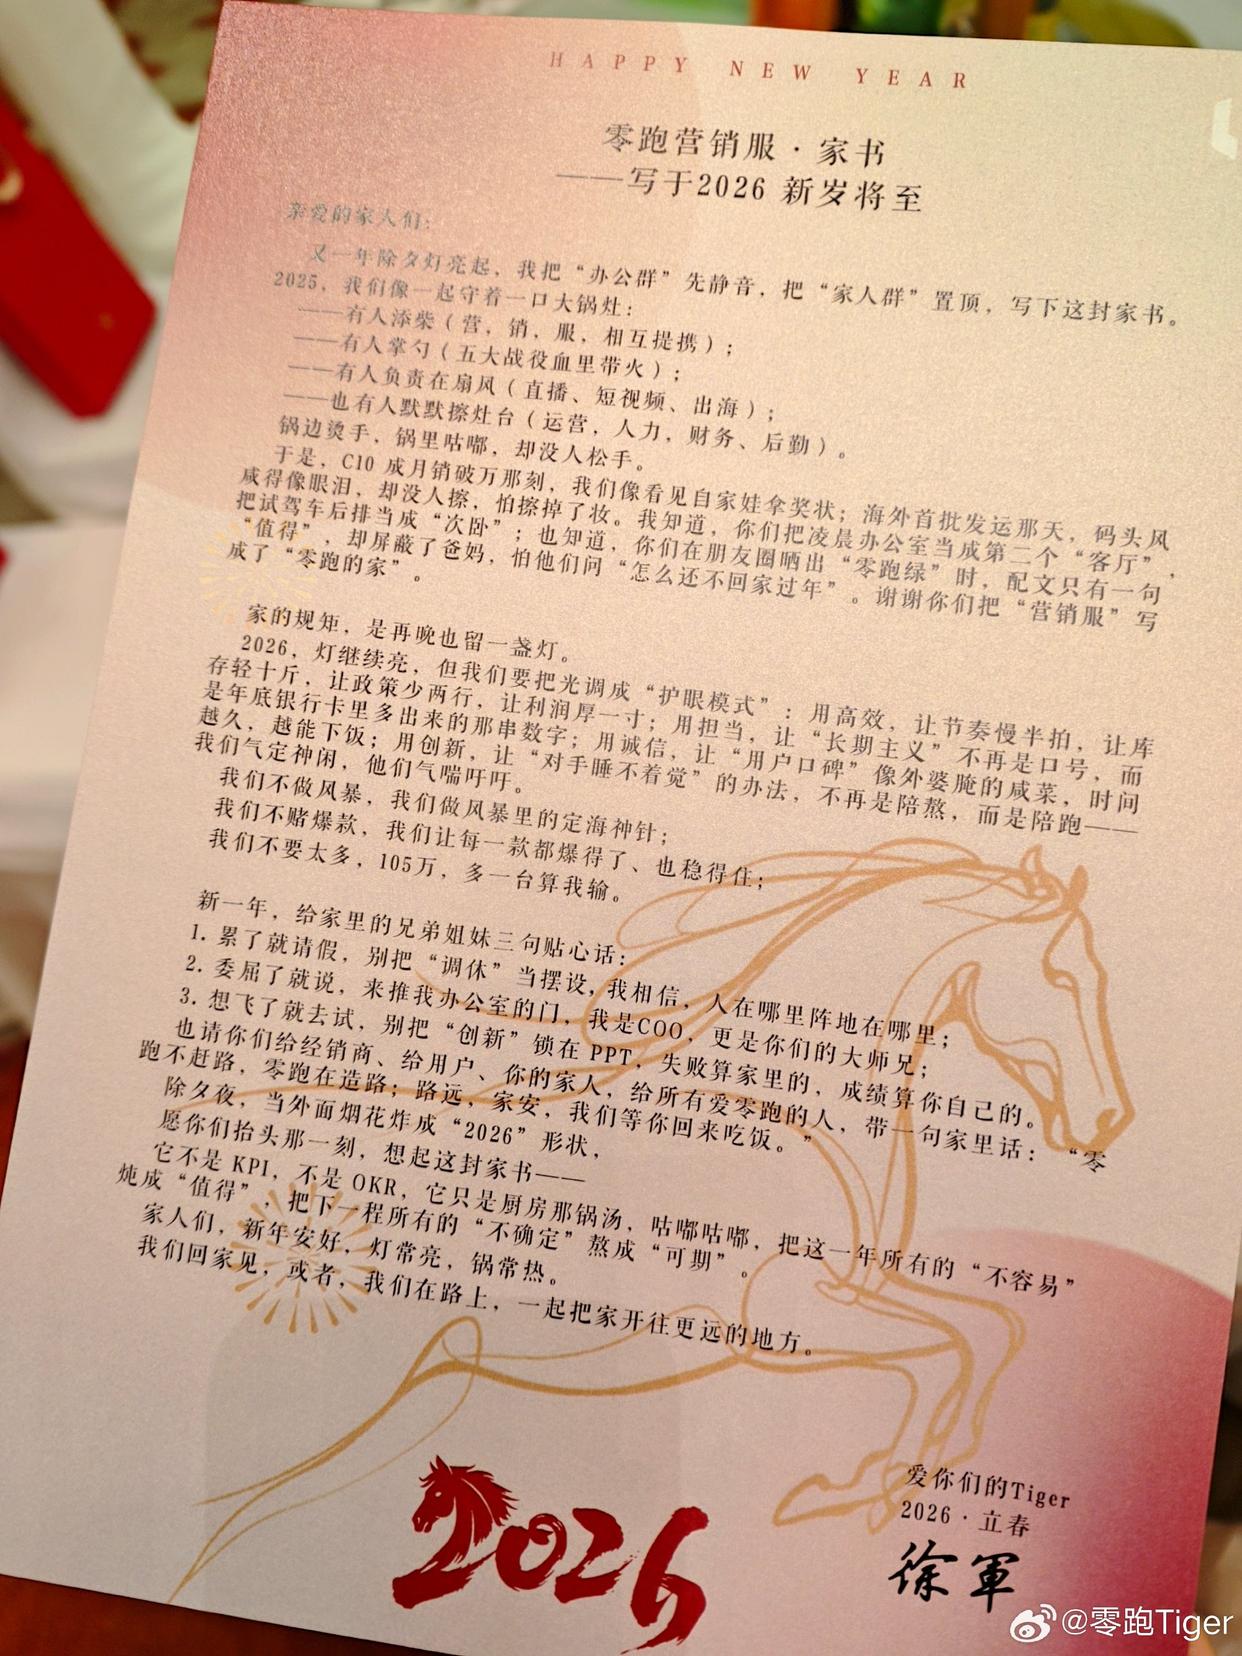 HAPPY NEW YEAR
零跑营销服·家书
——写于2026 新岁将至
亲爱的家人们：
又一年除夕灯亮起，我把“办公群”先静音，把“家人群”置顶，写下这封家书。
2025，我们像一起守着一口大锅灶：
——有人添柴（营，销，服，相互提携）；
——有人掌勺（五大战役血里带火）；
——有人负责在扇风（直播、短视频、出海）；
——也有人默默擦灶台（运营，人力，财务、后勤）。
锅边烫手，锅里咕嘟，却没人松手。
于是，C10 成月销破万那刻，我们像看见自家娃拿奖状；海外首批发运那天，码头风
咸得像眼泪，却没人擦，怕擦掉了妆。我知道，你们把凌晨办公室当成第二个“客厅”，
把试驾车后排当成“次卧”；也知道，你们在朋友圈晒出“零跑绿”时，配文只有一句
“值得”，却屏蔽了爸妈，怕他们问“怎么还不回家过年”。谢谢你们把“营销服”写
成了“零跑的家”。
家的规矩，是再晚也留一盏灯。
2026，灯继续亮，但我们要把光调成“护眼模式”：用高效，让节奏慢半拍，让库
存轻十斤，让政策少两行，让利润厚一寸；用担当，让“长期主义”不再是口号，而
是年底银行卡里多出来的那串数字；用诚信，让“用户口碑”像外婆腌的咸菜，时间
越久，越能下饭；用创新，让“对手睡不着觉”的办法，不再是陪熬，而是陪跑——
我们气定神闲，他们气喘吁吁。
我们不做风暴，我们做风暴里的定海神针；
我们不赌爆款，我们让每一款都爆得了、也稳得住；
我们不要太多，105万，多一台算我输。
新一年，给家里的兄弟姐妹三句贴心话：
1. 累了就请假，别把“调休”当摆设，我相信，人在哪里阵地在哪里；
2. 委屈了就说，来推我办公室的门，我是COO，更是你们的大师兄；
3. 想飞了就去试，别把“创新”锁在 PPT，失败算家里的，成绩算你自己的。
也请你们给经销商、给用户、你的家人，给所有爱零跑的人，带一句家里话：“零
跑不赶路，零跑在造路；路远，家安，我们等你回来吃饭。”
除夕夜，当外面烟花炸成“2026”形状，
愿你们抬头那一刻，想起这封家书——
它不是 KPI，不是 OKR，它只是厨房那锅汤，咕嘟咕嘟，把这一年所有的“不容易”
炖成“值得”，把下一程所有的“不确定”熬成“可期”。
家人们，新年安好，灯常亮，锅常热。
我们回家见，或者，我们在路上，一起把家开往更远的地方。
2026
爱你们的Tiger
2026·立春
徐軍
@零跑Tiger